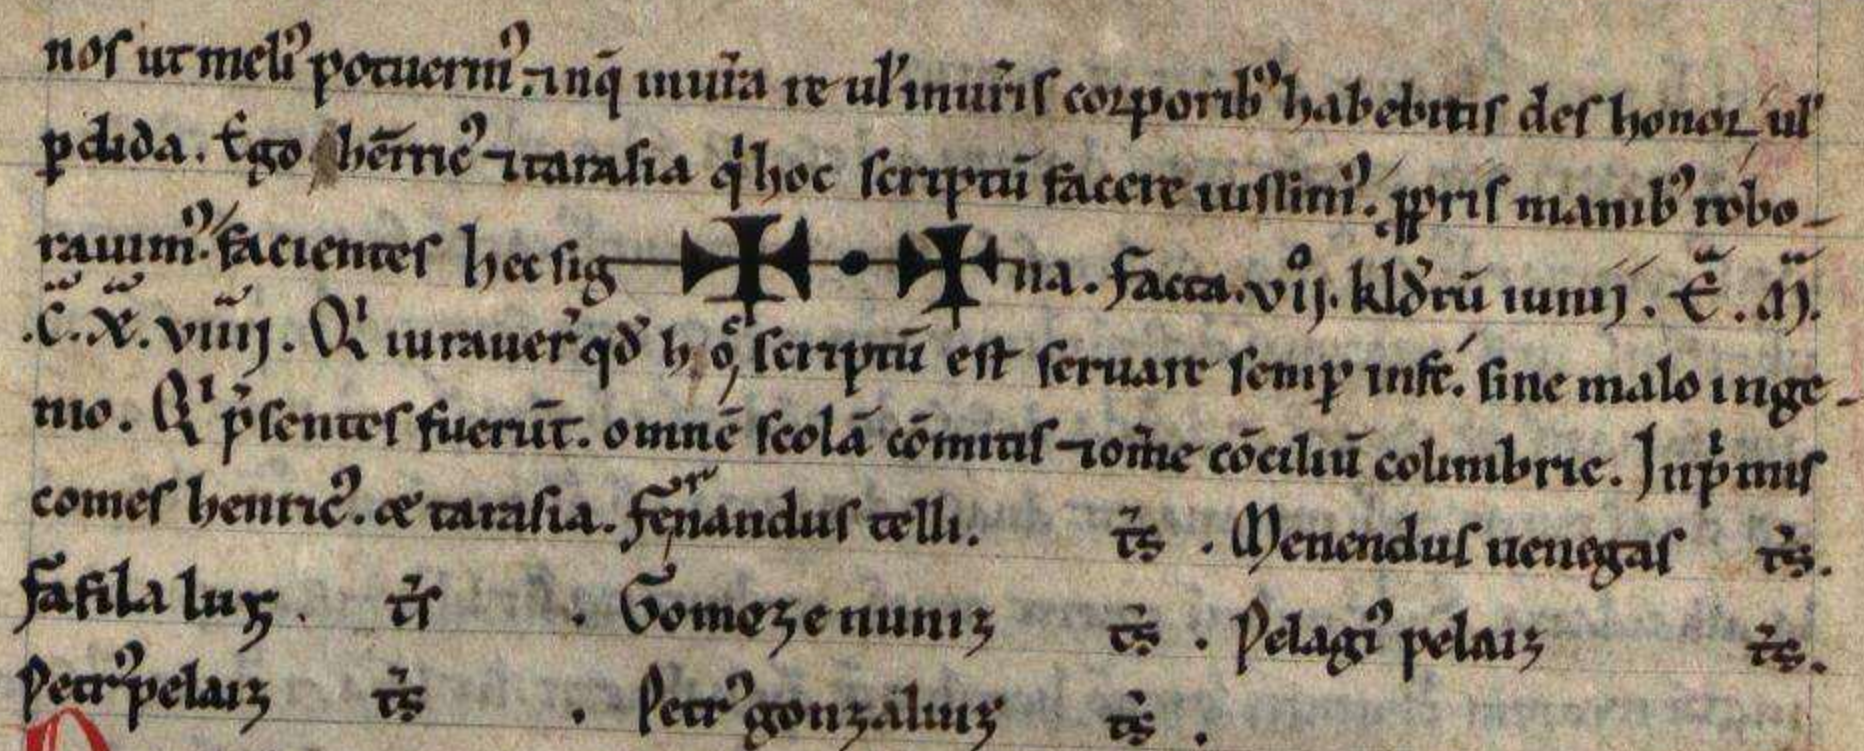 nos ut meliꝰ potuerimꝰ. ⁊ inq̄ in ur̄a re ul' in ur̄is corporibꝰ habebitis des honor, ul'
ꝑdida. Ego hēnricꝰ ⁊ tarasia qͥ hoc scriptū facere iussimꝰ. ꝓpriis manibꝰ robo-
rauimꝰ. facientes hec sig na. Facta. vͦij. kl'd'rū iunij. E͂. M͂.
.C͂. X͂. viiij. Qͥ iurauer̄ qd' h scriptū est seruare semꝑ sine malo inge-
nio. Qͥ p̄sentes fuerūt. omnē scolā cōmitis ⁊ om̄e cōciliū colimbrie. Inpͥmis
comes henricꝰ. et tarasia. Fernandus telli. t̄s. Menendus uenegas t̄s.
Fafila luz. t̄s. Gomez e nuniz t̄s. Pelagiꝰ pelaiz t̄s.
Petrꝰ pelaiz t̄s. Petrꝰ gonzaluiz t̄s.